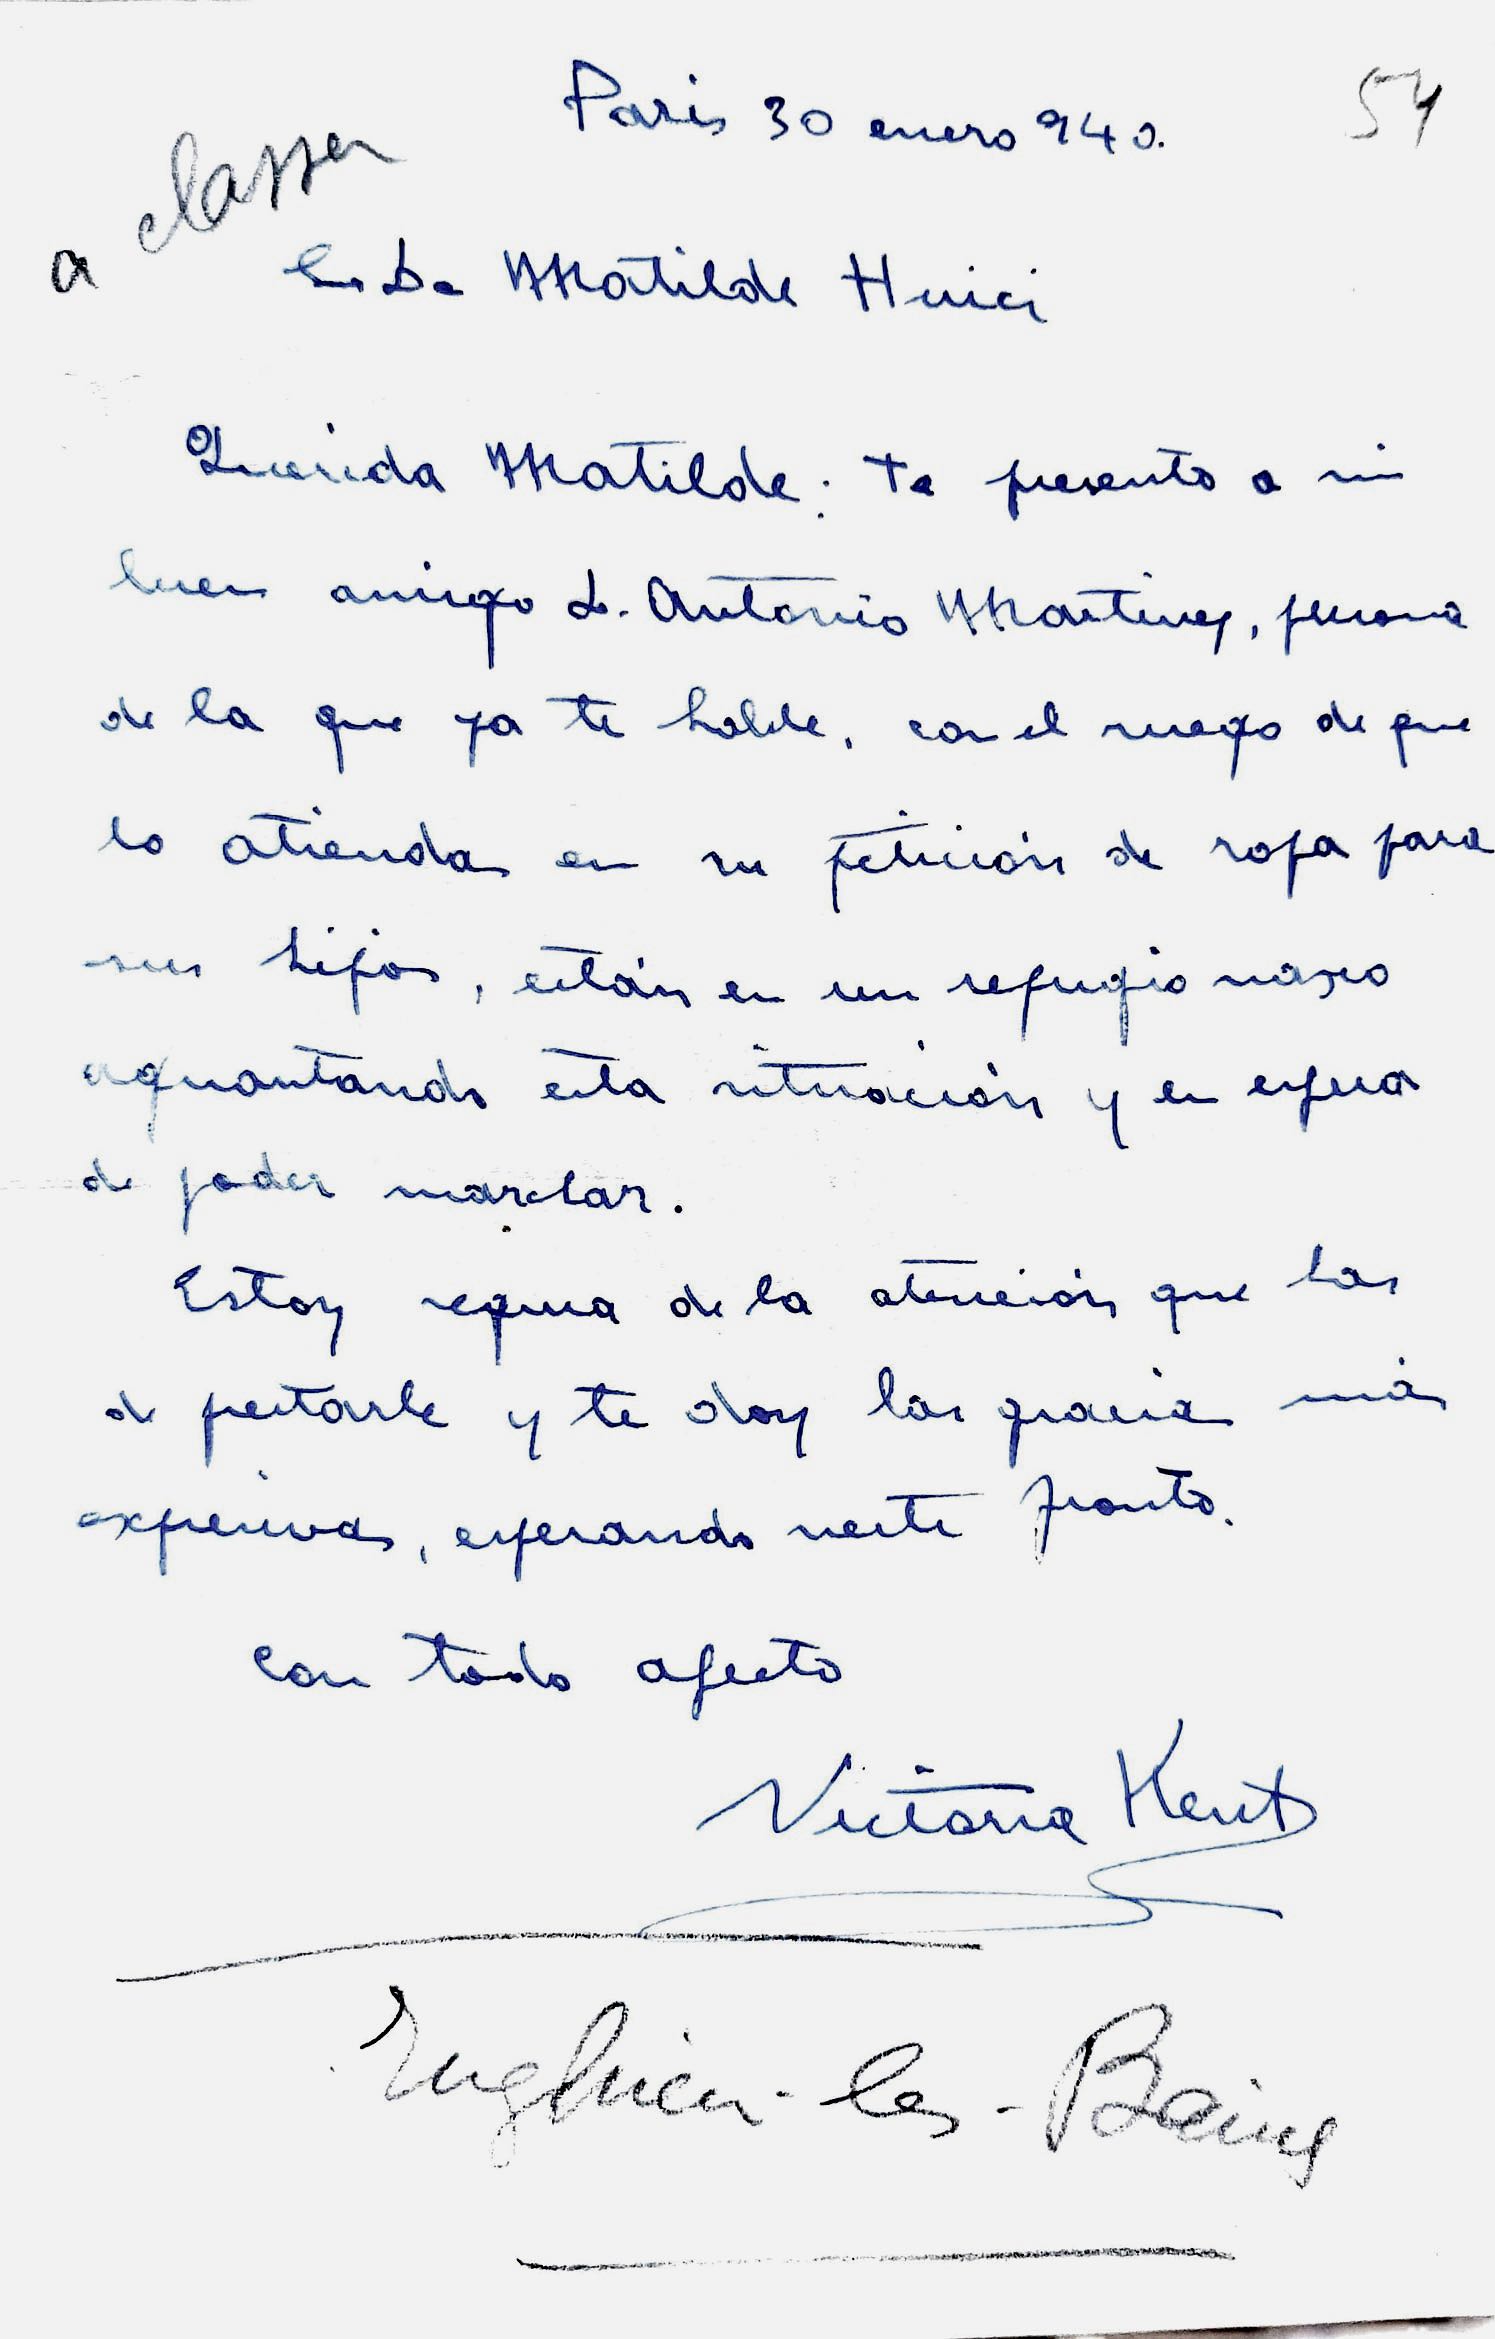 Paris 30 enero 940.
54
a classer
Sra Da Matilde Huici
Querida Matilde: te presento a mi
buen amigo D. Antonio Martinez, persona
de la que ya te hablé, con el ruego de que
lo atiendas en su petición de ropa para
sus hijos, están en un refugio vasco
aguantando esta situación y en espera
de poder marchar.
Estoy segura de la atención que has
de prestarle y te doy las gracias más
expresivas, esperando verte pronto.
Con todo afecto
Victoria Kent
Enghien-les-Bains